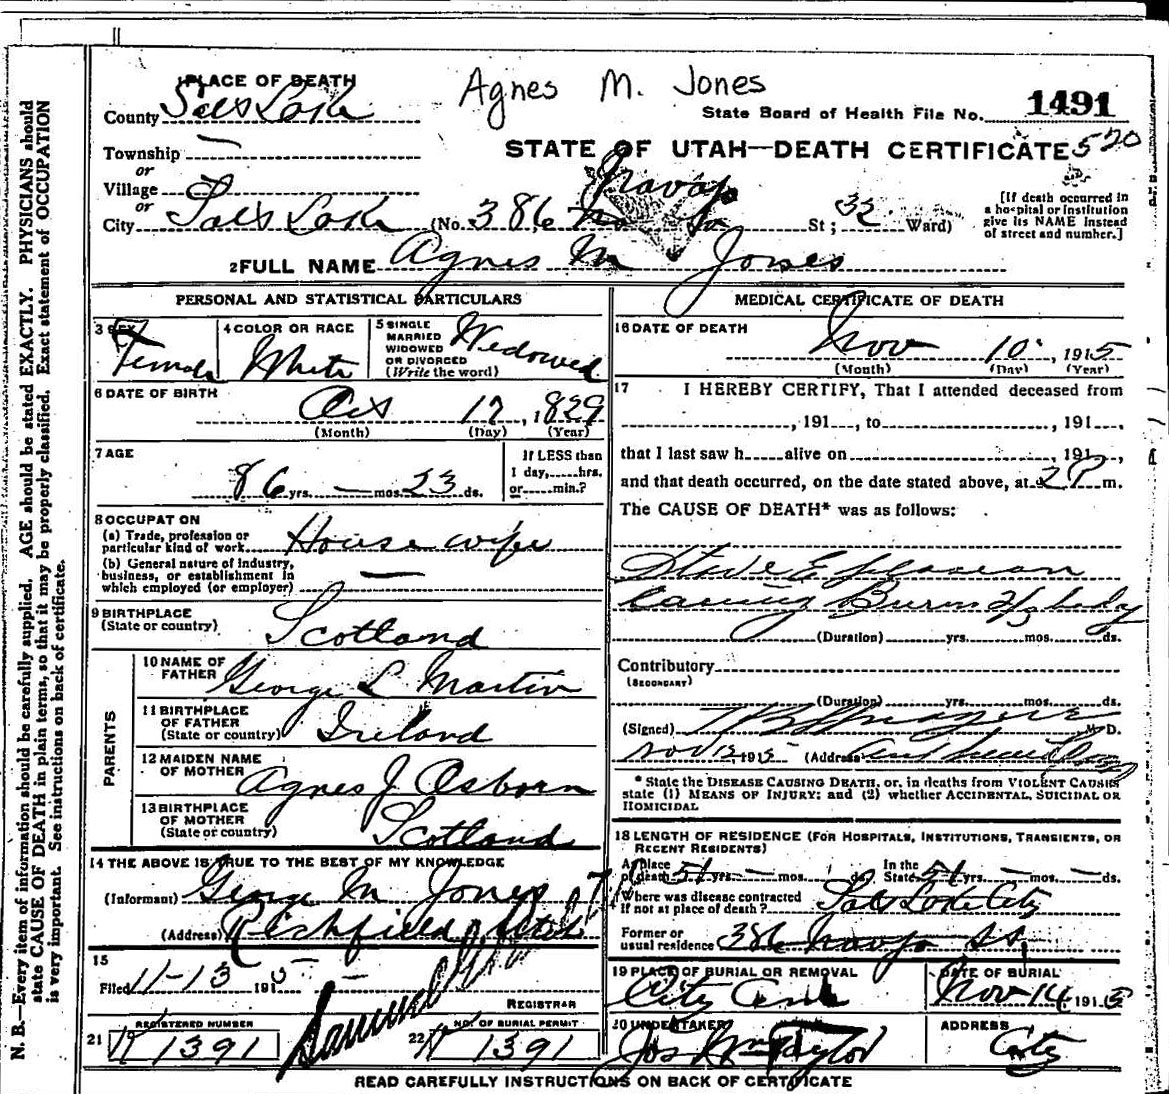 PLACE OF DEATH
Agnes M. Jones
County Salt Lake
State Board of Health File No. 1491
Township
STATE OF UTAH—DEATH CERTIFICATE 520
or
Village
or
City Salt Lake (No. 386 Navajo St; 32 Ward)
[If death occurred in
a hospital or institution
give its NAME instead
of street and number.]
2 FULL NAME Agnes M Jones
PERSONAL AND STATISTICAL PARTICULARS
3 SEX Female
4 COLOR OR RACE White
5 SINGLE
MARRIED
WIDOWED
OR DIVORCED
(Write the word) Widowed
6 DATE OF BIRTH
Oct 17, 1829
(Month) (Day) (Year)
7 AGE
86 yrs. — mos. 23 ds.
If LESS than
1 day,.....hrs.
or.....min.?
8 OCCUPATION
(a) Trade, profession or
particular kind of work House wife
(b) General nature of industry,
business, or establishment in
which employed (or employer) —
9 BIRTHPLACE
(State or country) Scotland
PARENTS
10 NAME OF
FATHER George L Martin
11 BIRTHPLACE
OF FATHER
(State or country) Ireland
12 MAIDEN NAME
OF MOTHER Agnes J. Osborn
13 BIRTHPLACE
OF MOTHER
(State or country) Scotland
14 THE ABOVE IS TRUE TO THE BEST OF MY KNOWLEDGE
(Informant) George M Jones
(Address) Richfield Utah
15
Filed 11-13 1915
REGISTRAR
21 REGISTERED NUMBER
1391
22 NO. OF BURIAL PERMIT
1391
MEDICAL CERTIFICATE OF DEATH
16 DATE OF DEATH
Nov 10, 1915
(Month) (Day) (Year)
17 I HEREBY CERTIFY, That I attended deceased from
, 191 , to , 191 ,
that I last saw h alive on , 191 ,
and that death occurred, on the date stated above, at 2 P m.
The CAUSE OF DEATH* was as follows:
Stove Explosion
causing Burns 2/3 body
(Duration) yrs. mos. ds.
Contributory
(SECONDARY)
(Duration) yrs. mos. ds.
(Signed) M.D.
Nov 12, 1915 (Address)
* State the DISEASE CAUSING DEATH, or, in deaths from VIOLENT CAUSES
state (1) MEANS OF INJURY; and (2) whether ACCIDENTAL, SUICIDAL OR
HOMICIDAL
18 LENGTH OF RESIDENCE (FOR HOSPITALS, INSTITUTIONS, TRANSIENTS, OR
RECENT RESIDENTS)
At place
of death 51 yrs. — mos. ds.
In the
State 51 yrs. — mos. — ds.
Where was disease contracted
if not at place of death? Salt Lake City
Former or
usual residence 386 Navajo St,
19 PLACE OF BURIAL OR REMOVAL
City Cem
DATE OF BURIAL
Nov 14, 1915
20 UNDERTAKER
Jos Wm Taylor
ADDRESS
City
READ CAREFULLY INSTRUCTIONS ON BACK OF CERTIFICATE
N. B.—Every item of information should be carefully supplied. AGE should be stated EXACTLY. PHYSICIANS should
state CAUSE OF DEATH in plain terms, so that it may be properly classified. Exact statement of OCCUPATION
is very important. See instructions on back of certificate.